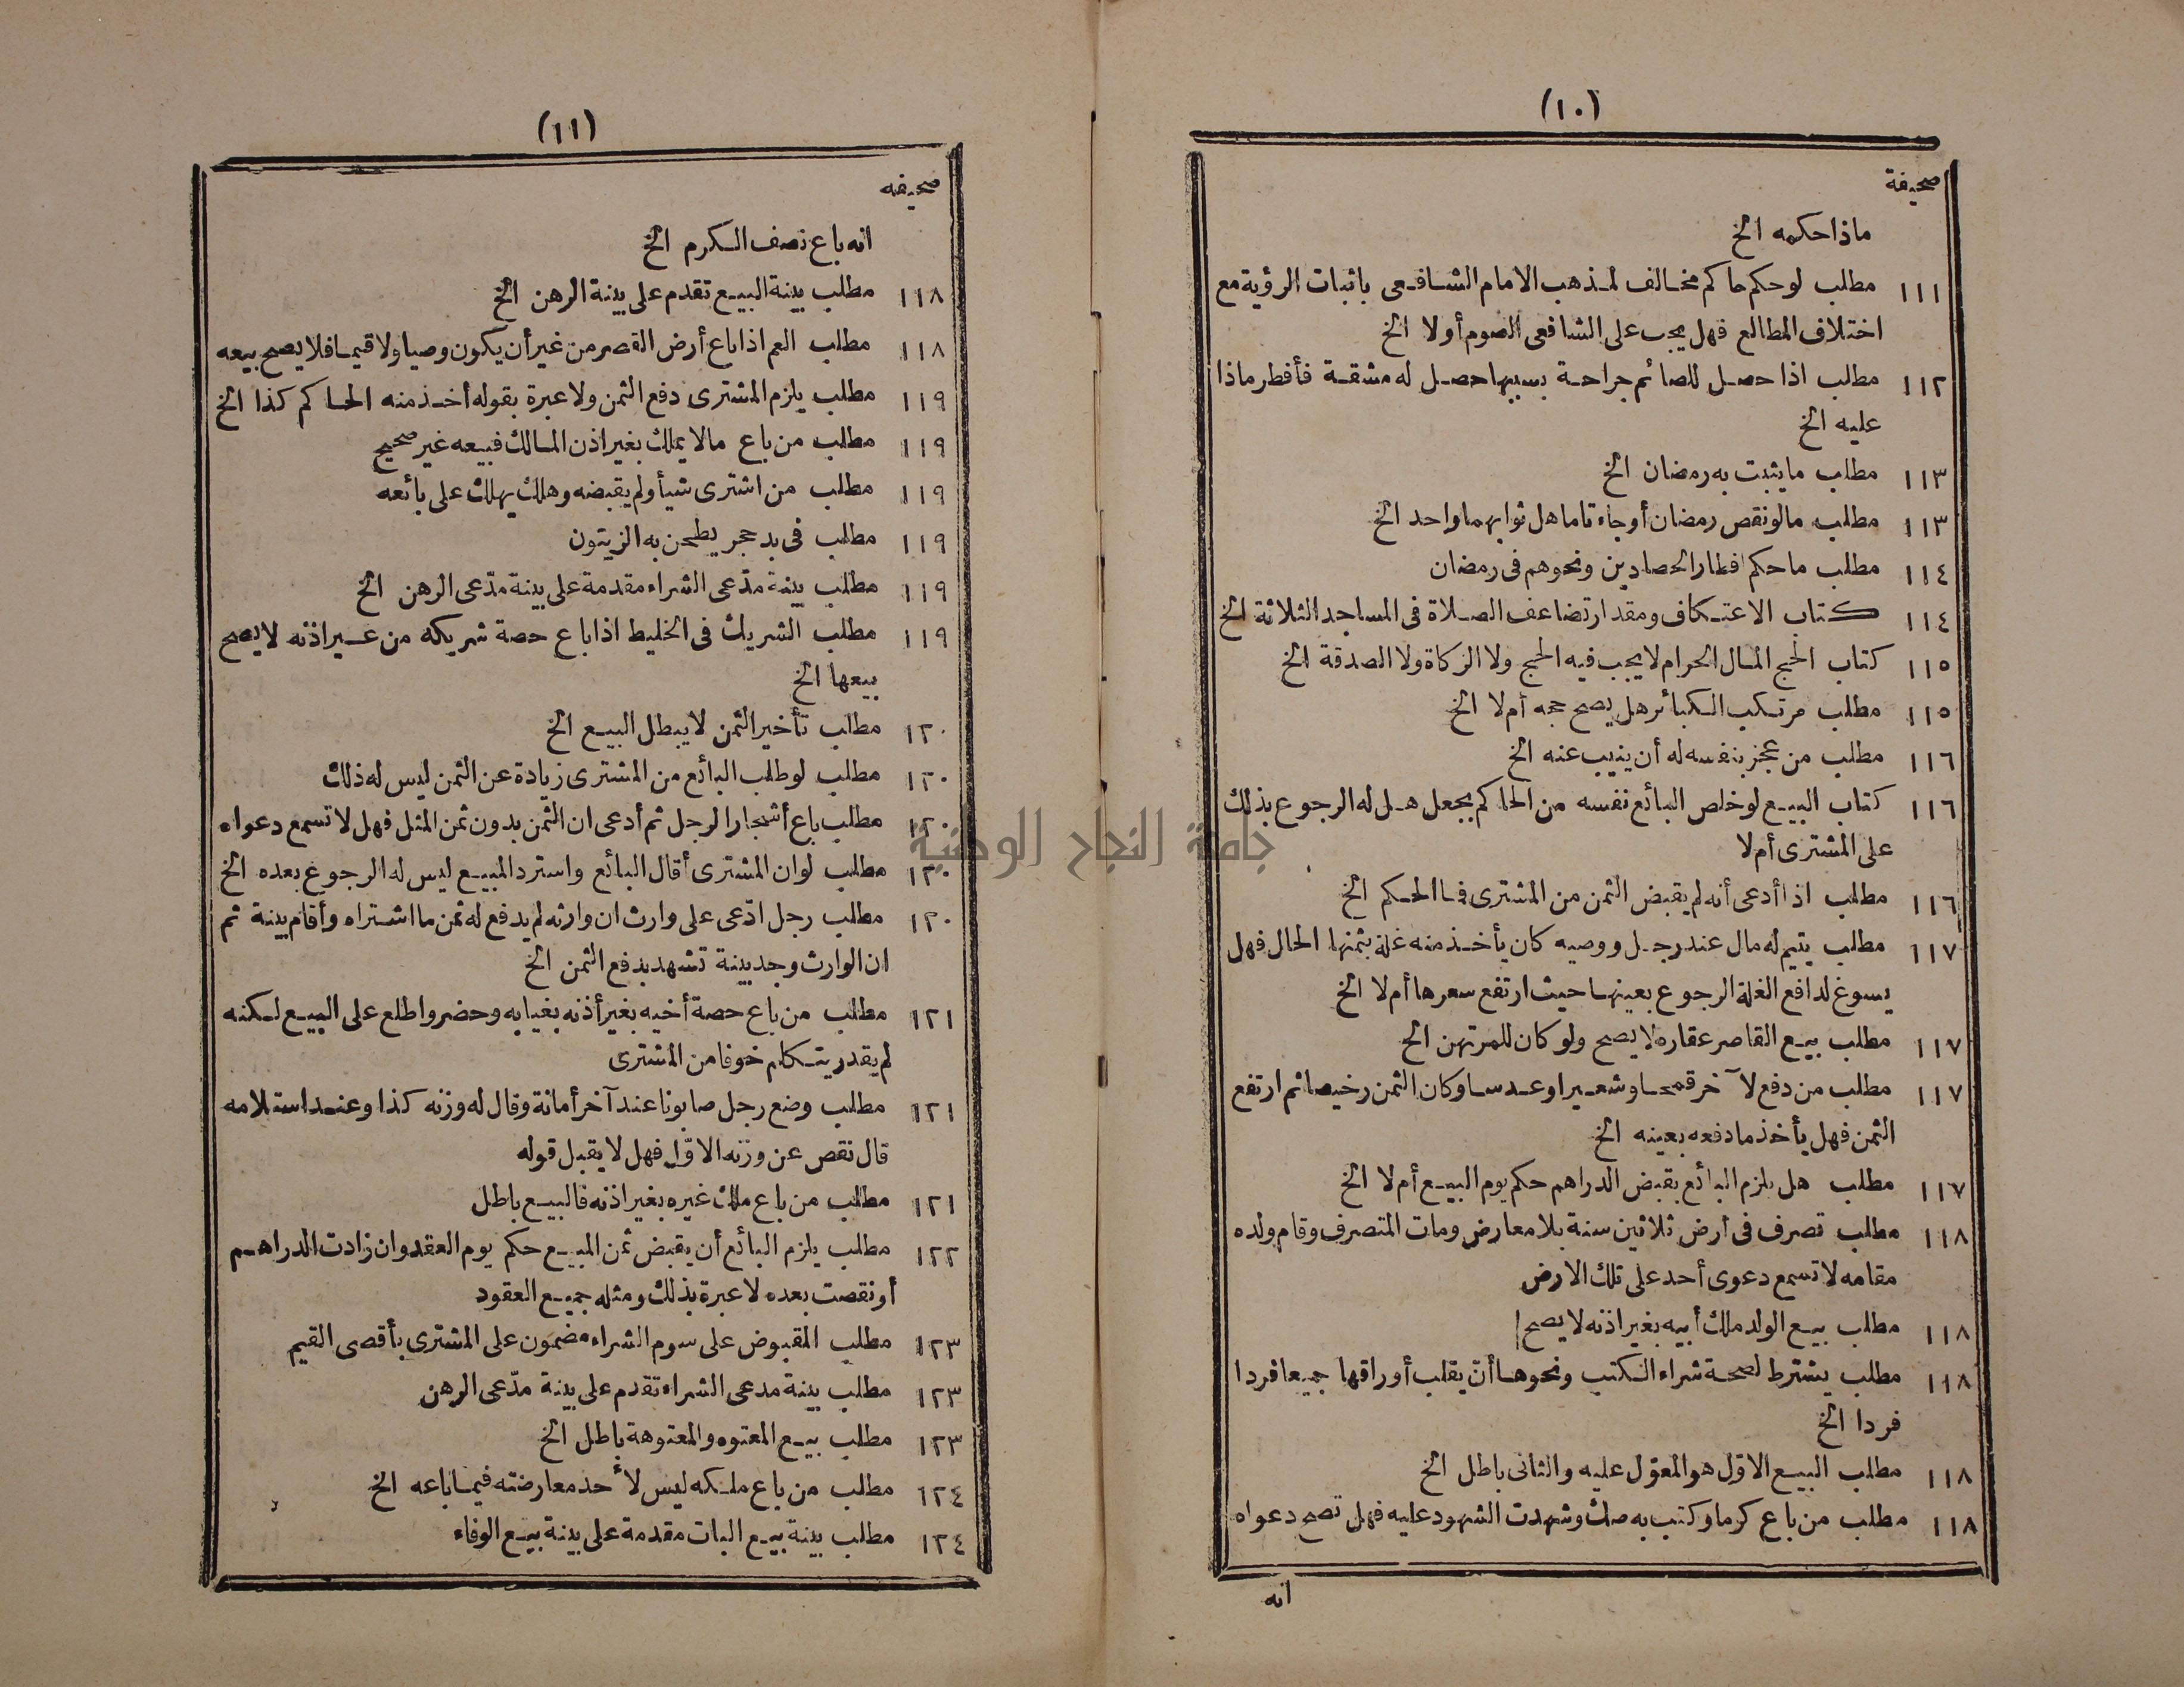 (١٠)
صحيفة
ماذا حكمه الخ
١١١ مطلب لو حكم حاكم مخالف لمذهب الامام الشافعى باثبات الرؤية مع
اختلاف المطالع فهل يجب على الشافعى الصوم أولا الخ
١١٢ مطلب اذا حصل للصائم جراحة بسببها حصل له مشقة فأفطر ماذا
عليه الخ
١١٣ مطلب ما يثبت به رمضان الخ
١١٣ مطلب مالو نقص رمضان أو جاء تاما هل ثوابهما واحد الخ
١١٤ مطلب ما حكم افطار الحصادين ونحوهم فى رمضان
١١٤ كتاب الاعتكاف ومقدار تضاعف الصلاة فى المساجد الثلاثة الخ
١١٥ كتاب الحج المال الحرام لا يجب فيه الحج ولا الزكاة ولا الصدقة الخ
١١٥ مطلب مرتكب الكبائر هل يصح حجه أم لا الخ
١١٦ مطلب من عجز بنفسه له أن ينيب عنه الخ
١١٦ كتاب البيع لو خلص البائع نفسه من الحاكم بجعل هل له الرجوع بذلك
على المشترى أم لا
١١٦ مطلب اذا أدعى أنه لم يقبض الثمن من المشترى فما الحكم الخ
١١٧ مطلب يتيم له مال عند رجل ووصيه كان يأخذ منه غلة بثمنها الحال فهل
يسوغ لدافع الغلة الرجوع بعينها حيث ارتفع سعرها أم لا الخ
١١٧ مطلب بيع القاصر عقاره لا يصح ولو كان للمرتهن الخ
١١٧ مطلب من دفع لآخر قمحا وشعيرا وعدسا وكان الثمن رخيصا ثم ارتفع
الثمن فهل يأخذ ما دفعه بعينه الخ
١١٧ مطلب هل يلزم البائع بقبض الدراهم حكم يوم البيع أم لا الخ
١١٨ مطلب تصرف فى أرض ثلاثين سنة بلا معارض ومات المتصرف وقام ولده
مقامه لا تسمع دعوى أحد على تلك الارض
١١٨ مطلب بيع الولد ملك أبيه بغير اذنه لا يصح
١١٨ مطلب يشترط لصحة شراء الكتب ونحوها أن يقلب أوراقها جميعا فردا
فردا الخ
١١٨ مطلب البيع الاول هو المعول عليه والثانى باطل الخ
١١٨ مطلب من باع كرما وكتب به صك وشهدت الشهود عليه فهل تصح دعواه
انه
(١١)
صحيفه
انه باع نصف الكرم الخ
١١٨ مطلب بينة البيع تقدم على بينة الرهن الخ
١١٨ مطلب العم اذا باع أرض القصر من غير أن يكون وصيا ولا قيما فلا يصح بيعه
١١٩ مطلب يلزم المشترى دفع الثمن ولا عبرة بقوله أخذ منه الحاكم كذا الخ
١١٩ مطلب من باع مالا يملك بغير اذن المالك فبيعه غير صحيح
١١٩ مطلب من اشترى شيأ ولم يقبضه وهلك يهلك على بائعه
١١٩ مطلب فى بد حجر يطحن به الزيتون
١١٩ مطلب بينة مدّعى الشراء مقدمة على بينة مدّعى الرهن الخ
١١٩ مطلب الشريك فى الخليط اذا باع حصة شريكه من غير اذنه لا يصح
بيعها الخ
١٢٠ مطلب تأخير الثمن لا يبطل البيع الخ
١٢٠ مطلب لو طلب البائع من المشترى زيادة عن الثمن ليس له ذلك
١٢٠ مطلب باع أشجارا لرجل ثم أدعى ان الثمن بدون ثمن المثل فهل لا تسمع دعواه
١٢٠ مطلب لو ان المشترى أقال البائع واسترد المبيع ليس له الرجوع بعده الخ
١٢٠ مطلب رجل ادّعى على وارث ان وارثه لم يدفع له ثمن ما اشتراه وأقام بينة ثم
ان الوارث وجد بينة تشهد بدفع الثمن الخ
١٢١ مطلب من باع حصة أخيه بغير أذنه بغيابه وحضر واطلع على البيع لكنه
لم يقدر يتكلم خوفا من المشترى
١٢١ مطلب وضع رجل صابونا عند آخر أمانة وقال له وزنه كذا وعند استلامه
قال نقص عن وزنه الاوّل فهل لا يقبل قوله
١٢١ مطلب من باع ملك غيره بغير اذنه فالبيع باطل
١٢٢ مطلب يلزم البائع أن يقبض ثمن المبيع حكم يوم العقد وان زادت الدراهم
أو نقصت بعده لا عبرة بذلك ومثله جميع العقود
١٢٣ مطلب المقبوض على سوم الشراء مضمون على المشترى بأقصى القيم
١٢٣ مطلب بينة مدعى الشراء تقدم على بينة مدّعى الرهن
١٢٣ مطلب بيع المعتوه والمعتوهة باطل الخ
١٢٤ مطلب من باع ملكه ليس لأحد معارضته فيما باعه الخ
١٢٤ مطلب بينة بيع البات مقدمة على بينة بيع الوفاء
جامعة النجاح الوطنية